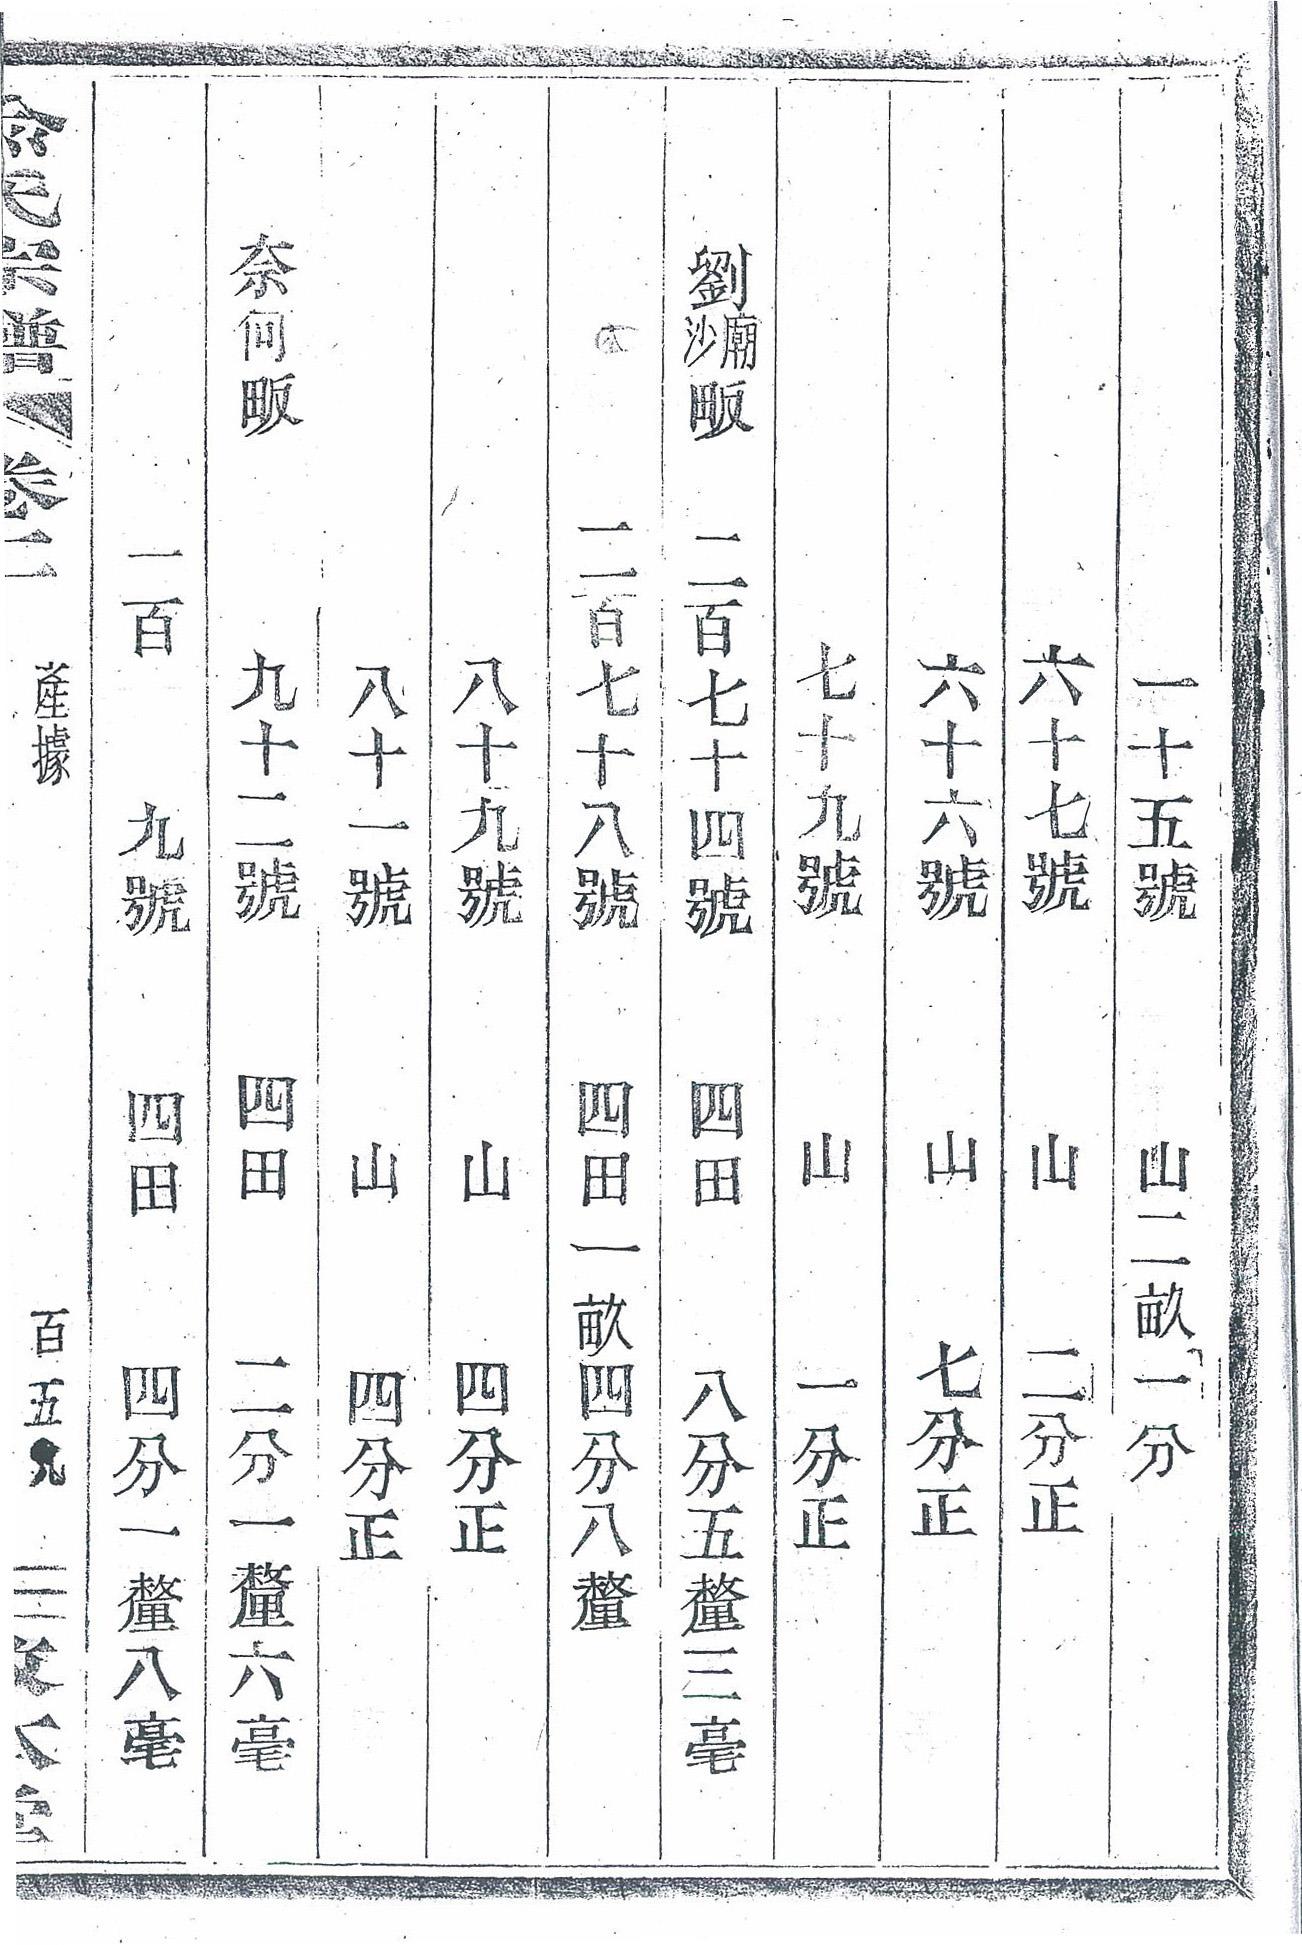 一十五號 山二畝一分
六十七號 山 二分正
六十六號 山 七分正
七十九號 山 一分正
劉沙廟畈 二百七十四號 四田 八分五釐三毫
二百七十八號 四田一畝四分八釐
八十九號 山 四分正
八十一號 山 四分正
奈何畈 九十二號 四田 二分一釐六毫
一百 九號 四田 四分一釐八毫
氏宗譜 卷二 產據 百五九